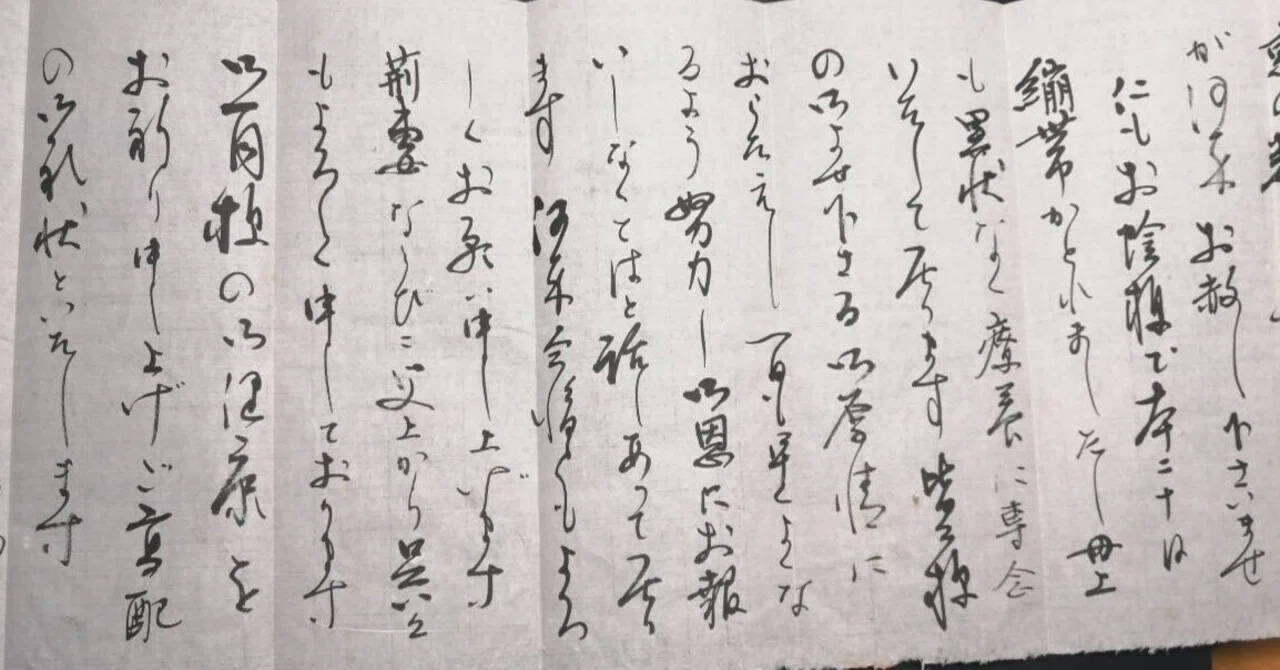 が何卒お赦し下さいませ
仁もお陰様で本二十日
繃帯がとれました 母上
も異状なく療養に専念
いたして居ります 皆々様
の御よせ下さる御厚情に
おこたえし 一日も早くよくな
るよう努力し 御恩にお報
いしなくてはと話しあって居り
ます 何卒今後ともよろ
しくお願い申し上げます
荊妻ならびに父上から呉々
もよろしく申しております
御一同様の御健康を
お祈り申し上げ ご高配
の御礼状といたします